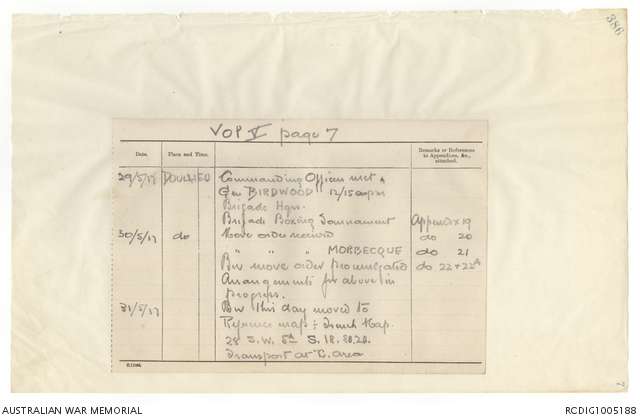 386
VOL V page 7
Date. Place and Time. Remarks or References to Appendices, &c., attached.
29/5/17 DOULIEU Commanding Officer met
Gen BIRDWOOD 12/15
Brigade Hqrs.
Brigade Boxing Tournament Appendix 19
30/5/17 do Move order received do 20
" " " MORBECQUE do 21
Bn move order promulgated do 22 + 22A
Arrangements for above in
progress.
31/5/17 Bn this day moved to
Reference map: Trench Map.
28 S.W. S.18.
Transport at T. area
AUSTRALIAN WAR MEMORIAL
RCDIG1005188